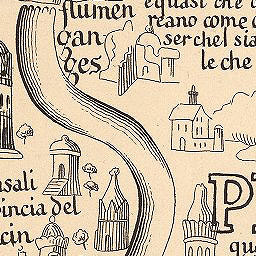 flumen
gan
ges
equasi che
reano come
ser chel sia
le che
asali
incia del
cin
P
qu